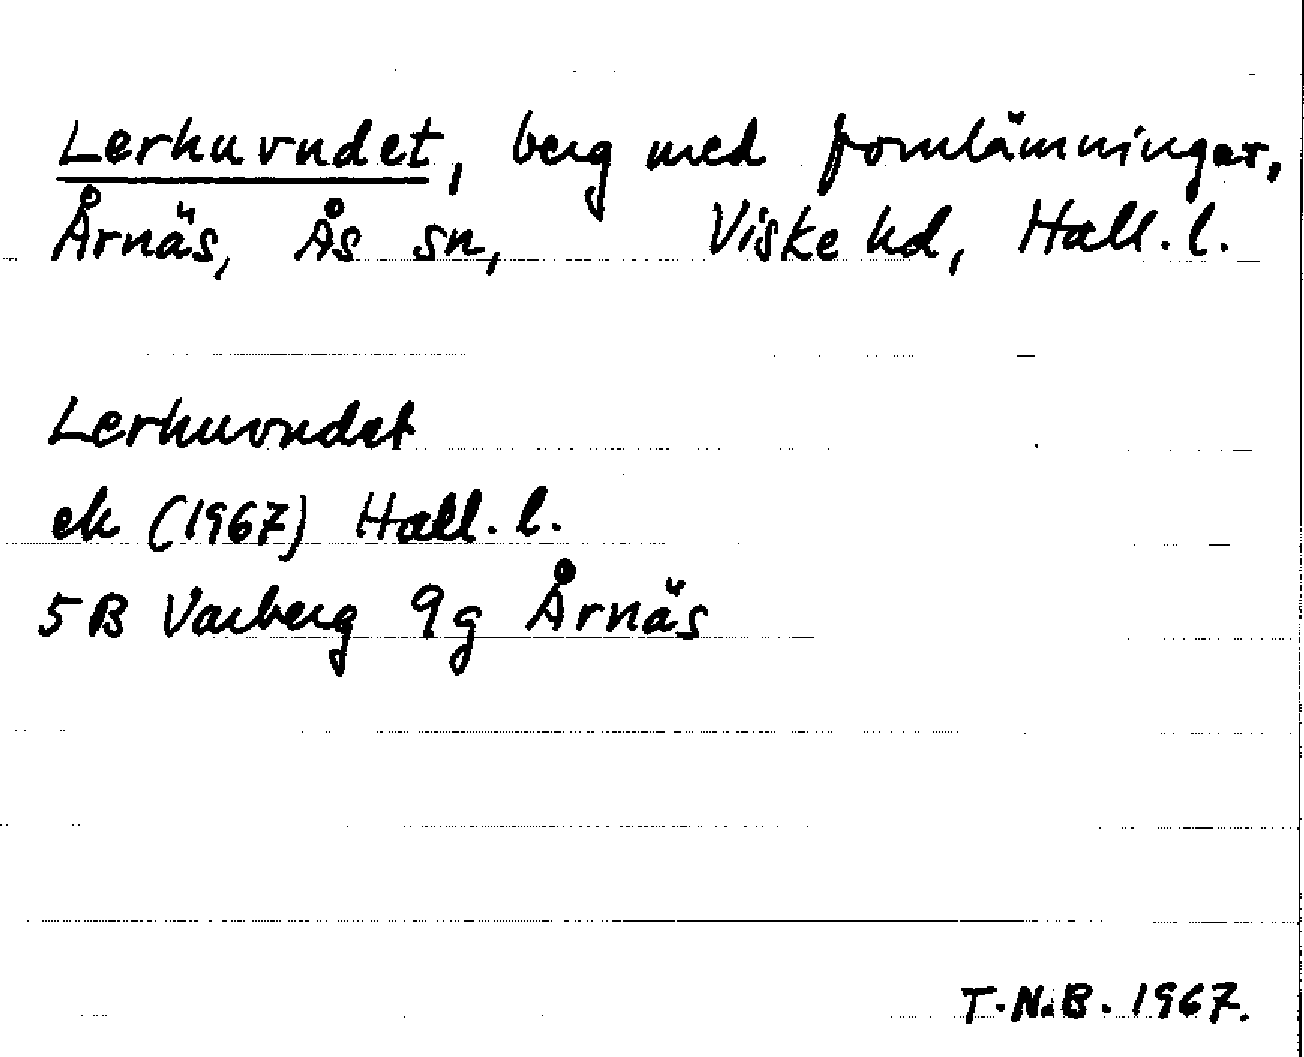 Lerhuvudet, berg med fornlämningar,
Årnäs, Ås sn, Viske hd, Hall. l.
Lerhuvudet
ek (1967) Hall. l.
5B Varberg 9g Årnäs
T.N.B. 1967.